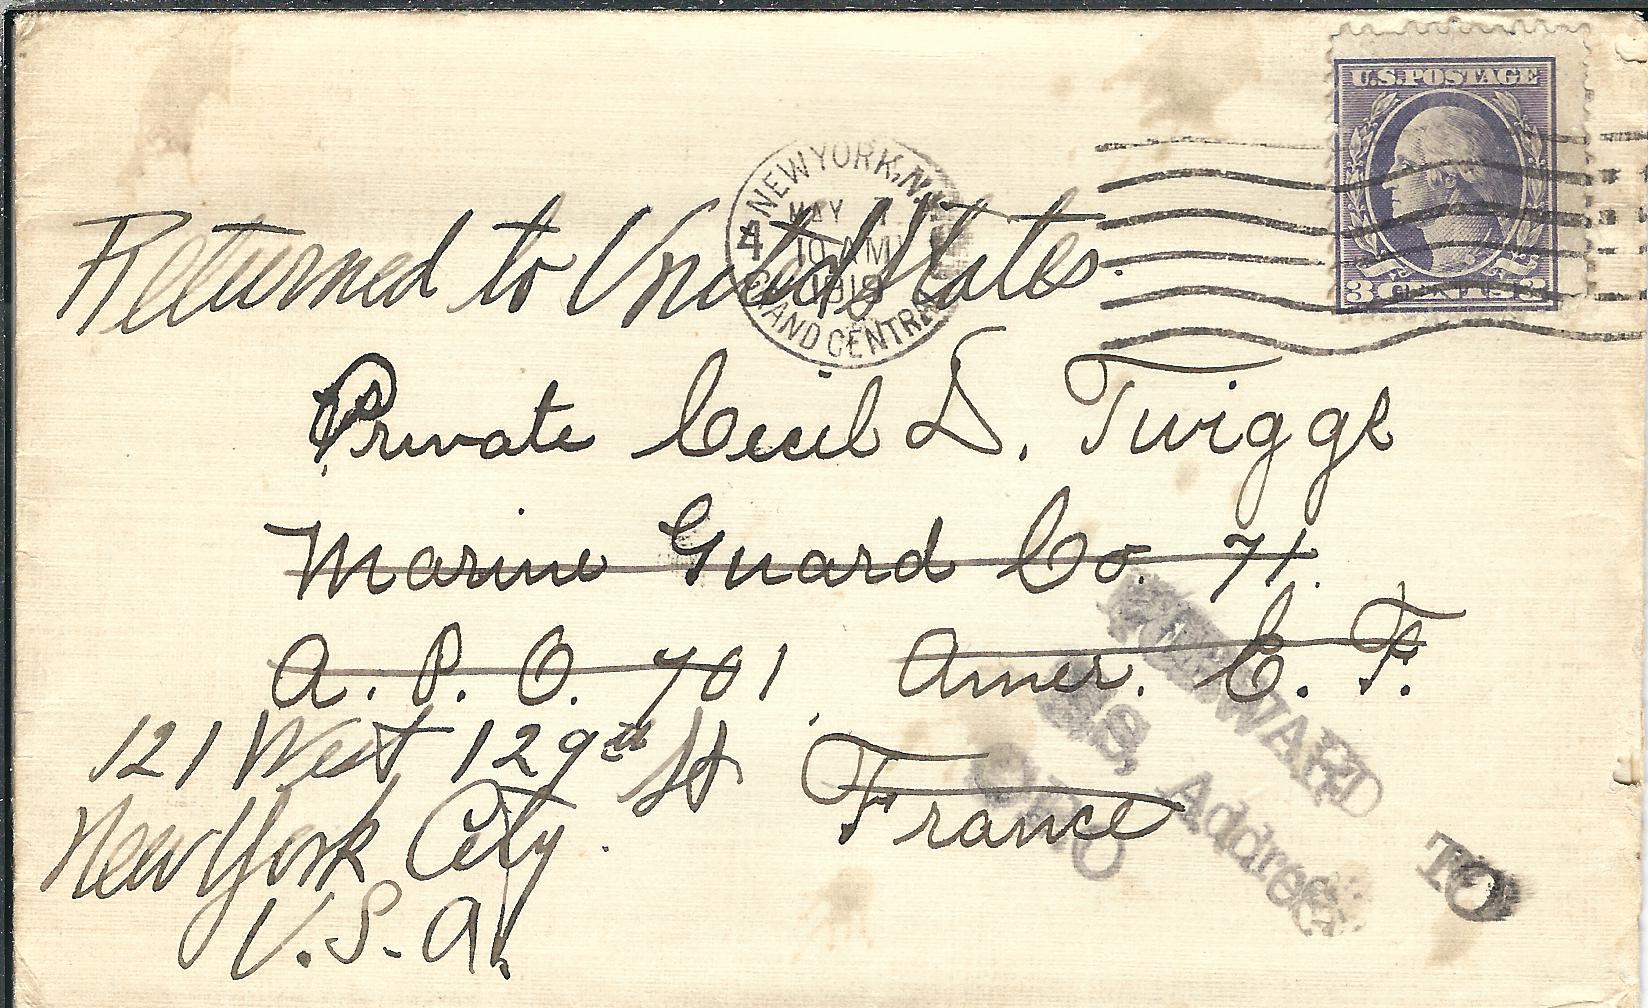 U.S. POSTAGE
3 CENTS 3
NEW YORK, N.Y.
MAY
4
10 AM
GRAND CENTRAL
Returned to United States.
Private Cecil D. Twiggs
Marine Guard Co. 71.
A. P. O. 701, Amer. E. F.
121 West 129th St France
New York City.
U.S.A.
FORWARD TO
US, Address